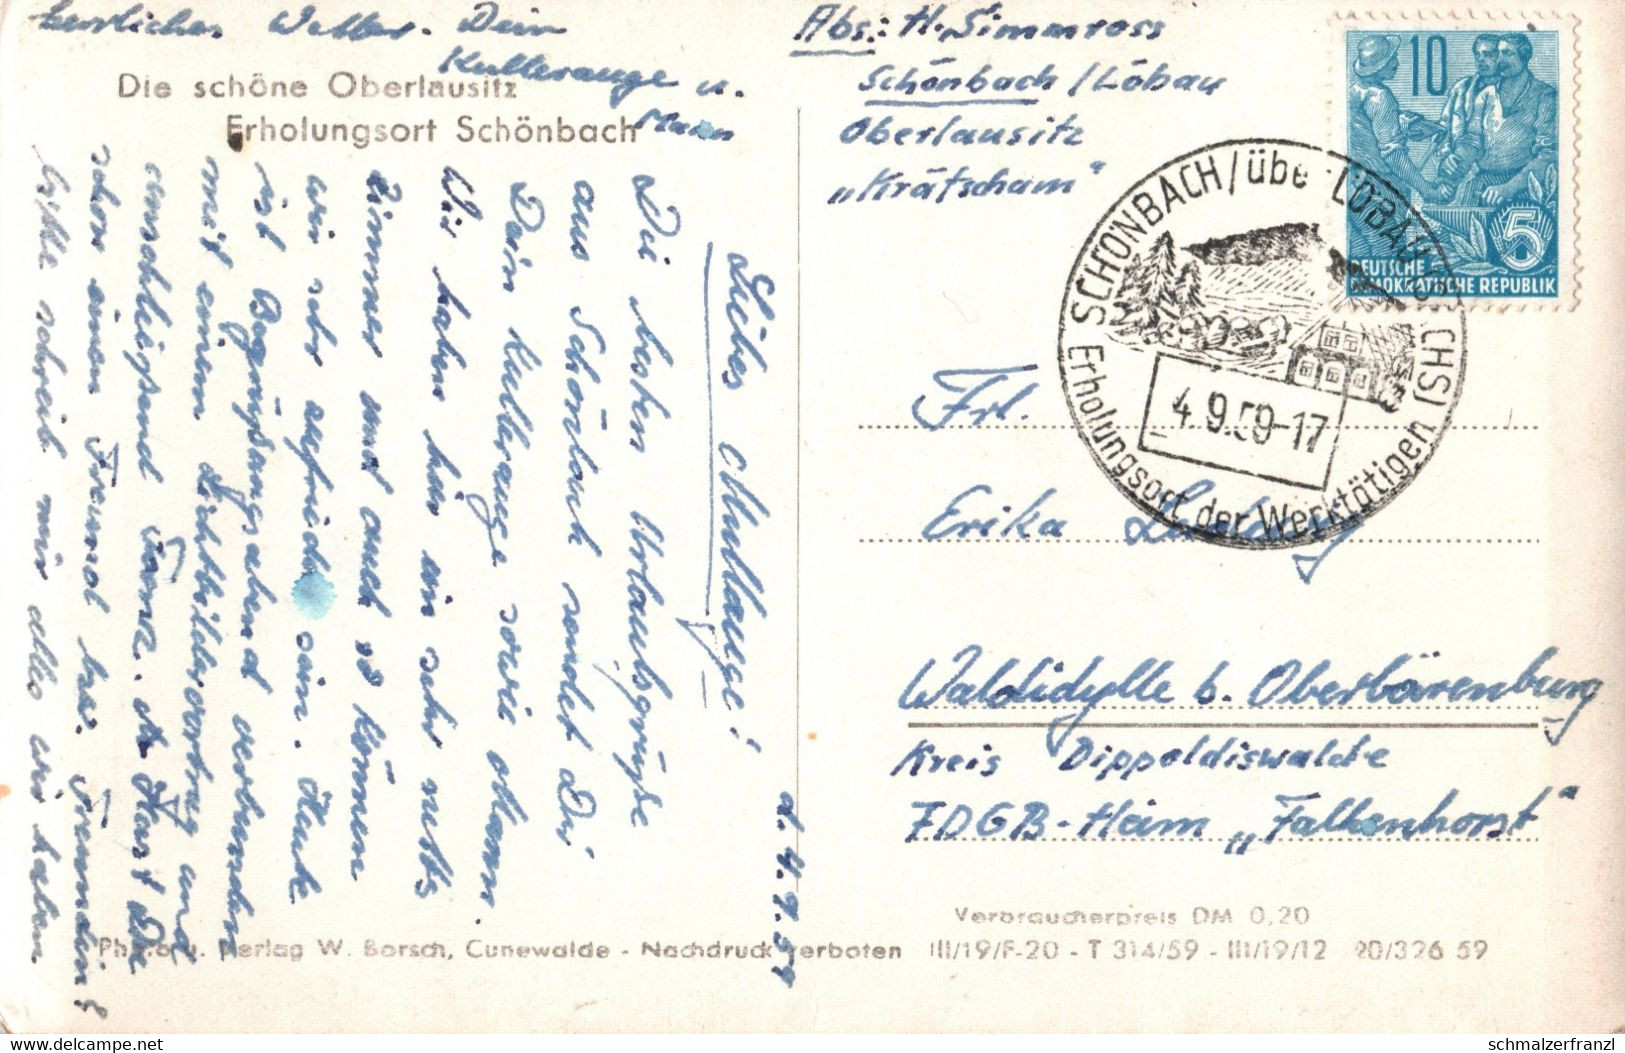 Die schöne Oberlausitz
Erholungsort Schönbach
d. 4.9.59
Liebes Mullauge!
Die besten Urlaubsgrüße
aus Schönbach sendet Dir
Dein Kullerauge sowie Mann.
Wir haben hier ein sehr nettes
Zimmer und auch so können
wir sehr zufrieden sein. Heute
ist Begrüßungsabend verbunden
mit einem Lichtbildervortrag und
anschließend Tanz. Hast Du
schon einen Freund bzw. Freundin?
Bitte schreib mir alles wir haben
herrliches Wetter. Dein
Kullerauge u.
Mann
Abs.: H. Simmross
Schönbach / Löbau
Oberlausitz
„Krätscham“
10
5
DEUTSCHE
DEMOKRATISCHE REPUBLIK
SCHÖNBACH / über LÖBAU (SACHS)
4.9.59-17
Erholungsort der Werktätigen
Frl.
Erika
Waldidylle b. Oberbärenburg
Kreis Dippoldiswalde
FDGB-Heim „Falkenhorst“
Verbraucherpreis DM 0,20
Photo u. Verlag W. Borsch, Cunewalde - Nachdruck verboten III/19/F-20 - T 314/59 - III/19/12 20/326 59
delcampe.net
schmalzerfranzl